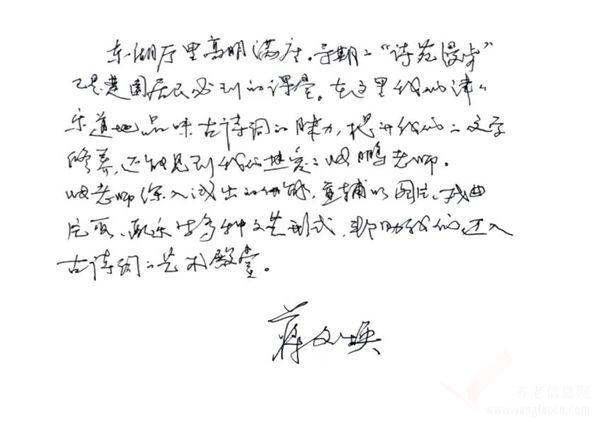 东湖厅里高朋满座,每期的“诗苑漫步”
已是楚园居民必到的课堂。在这里我们津津
乐道地品味古诗词的魅力,提升我们的文学
修养,还能见到我们热爱的 鹏老师。
老师深入浅出的讲解,直辅以图片、戏曲
片段、配乐等多种文艺形式,帮助我们进入
古诗词的艺术殿堂。
蒋文焕
养老信息网
www.yanglaocn.com